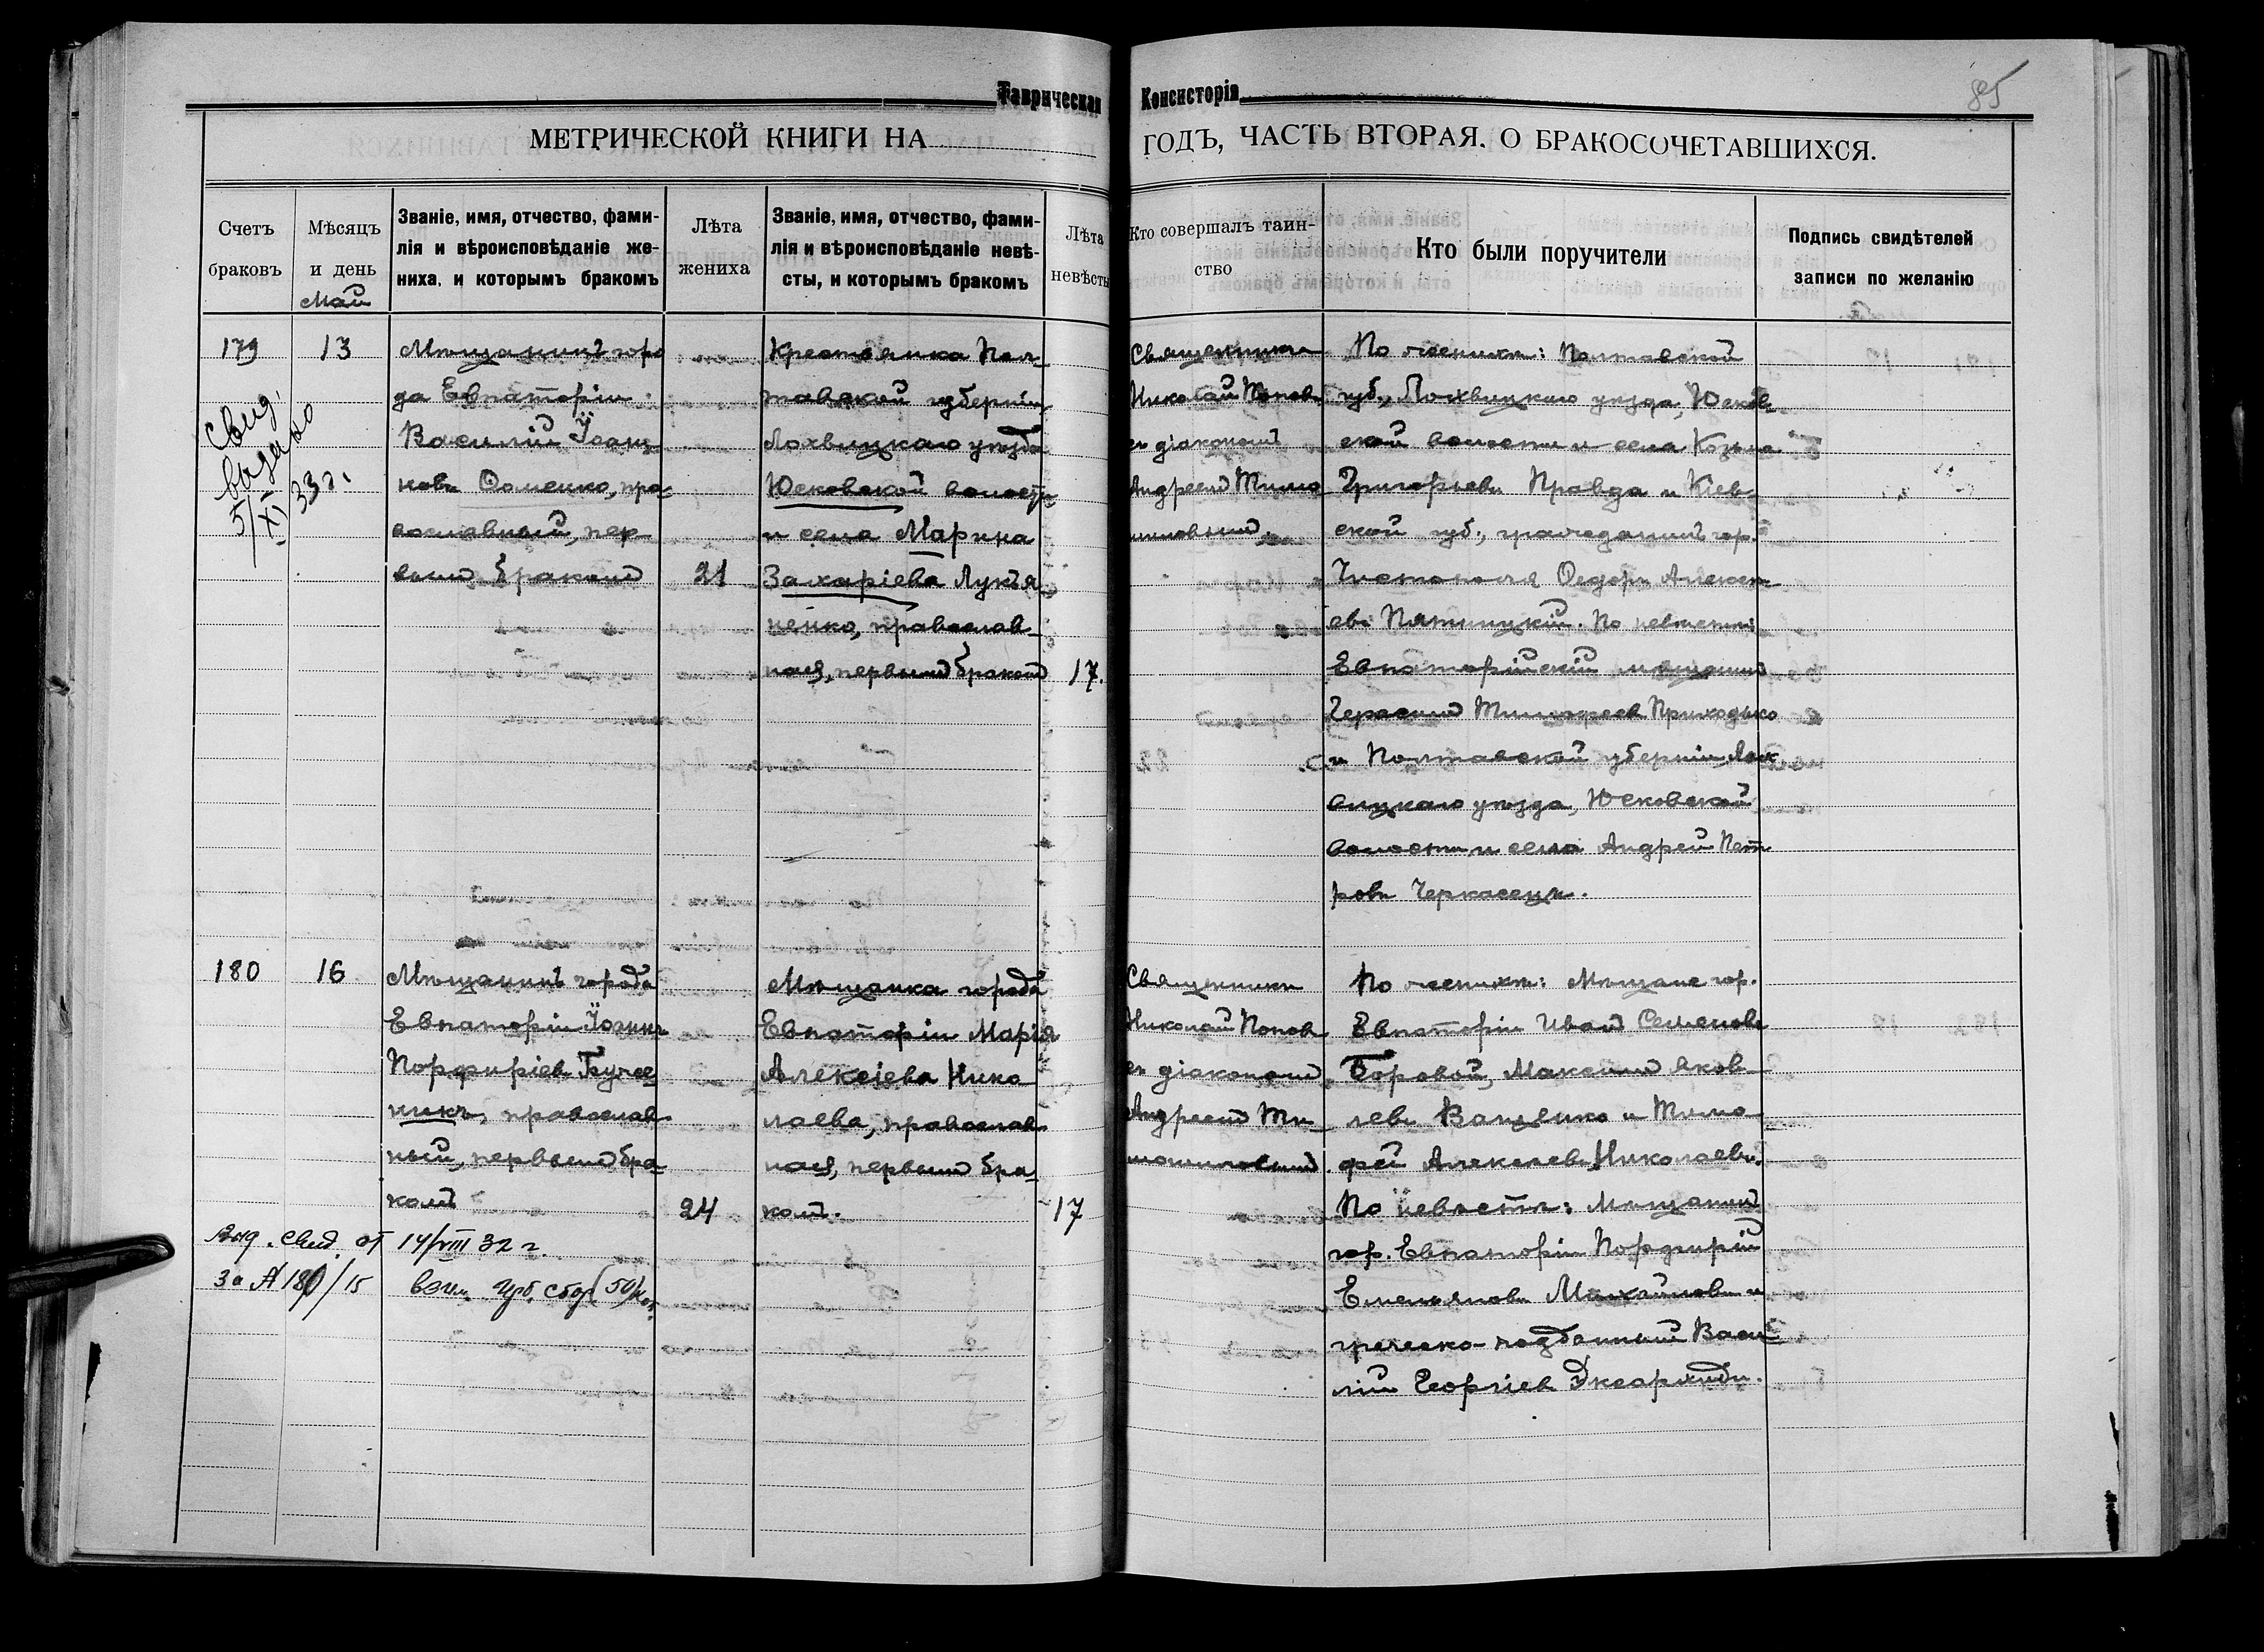 Таврическая Консисторія
85
МЕТРИЧЕСКОЙ КНИГИ НА ГОДЪ, ЧАСТЬ ВТОРАЯ. О БРАКОСОЧЕТАВШИХСЯ.
Счетъ браковъ
Мѣсяцъ и день
Май
Званіе, имя, отчество, фами-
лія и вѣроисповѣданіе же-
ниха, и которымъ бракомъ
Лѣта
жениха
Званіе, имя, отчество, фами-
лія и вѣроисповѣданіе невѣ-
сты, и которымъ бракомъ
Лѣта
невѣсты
Кто совершалъ таин-
ство
Кто были поручители
Подпись свидѣтелей
записи по желанію
179
13
Свид.
выдано
5/XI 33 г.
Мѣщанинъ горо
да Евпаторіи
Василій Іоан
новъ Фоменко, пра-
вославный, пер
вымъ бракомъ
21
Крестьянка Пол-
тавской губерніи,
Лохвицкаго уѣзда
Юсковской волости
и села Марина
Захаріева Лукья
ненко, православ-
ная, первымъ бракомъ
17.
Священникъ
Николай Поповъ
съ діакономъ
Андреемъ Тимо
По женихѣ: Полтавской
губ., Лохвицкаго уѣзда, Юсков-
ской волости и села Козьма
Григорьевъ Правда и Кіев-
ской губ., гражданинъ гор.
Чистополя Ѳедоръ Алексѣ-
евъ Пятницкій. По невѣстѣ:
Евпаторійскій мѣщанинъ
Герасимъ Тимофеевъ Приходько
и Полтавской губерніи, Лох
вицкаго уѣзда, Юсковской
волости и села Андрей Пет
ровъ Черкасецъ.
180
16
Мѣщанинъ города
Евпаторіи Іоаннъ
Порфиріевъ
православ
ный, первымъ бра-
комъ
24
Мѣщанка города
Евпаторіи Марія
Алексіева Нико
лаева, православ
ная, первымъ бра-
комъ.
17
Священникъ
Николай Поповъ
съ діакономъ
Андреемъ Ти-
По женихѣ: Мѣщане гор.
Евпаторіи Иванъ Семеновъ
Боровой, Максимъ Яков-
левъ Ващенко и Тимо-
фей Алексѣевъ Николаевъ.
По невѣстѣ: Мѣщанинъ
гор. Евпаторіи Порфирій
Емельяновъ Михайловъ и
греческо-подданный Васи
лій Георгіев
Выд. свид. от 14/VIII 32 г.
За № 180/15 взим. сбор 50 коп.